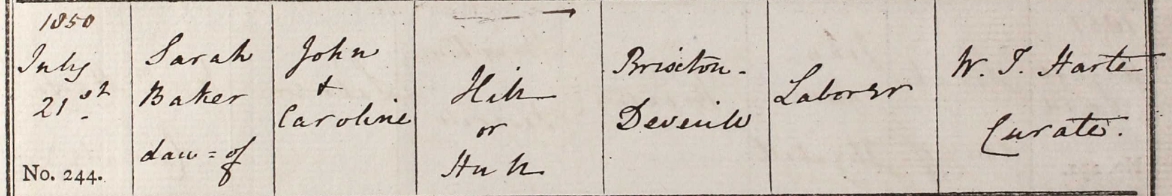 1850
July
21st
No. 244.
Sarah
Baker
dau = of
John
+
Caroline
Hill
or
Hull
Brixton-
Deverill
Laborer
W. T. Harte
Curate.